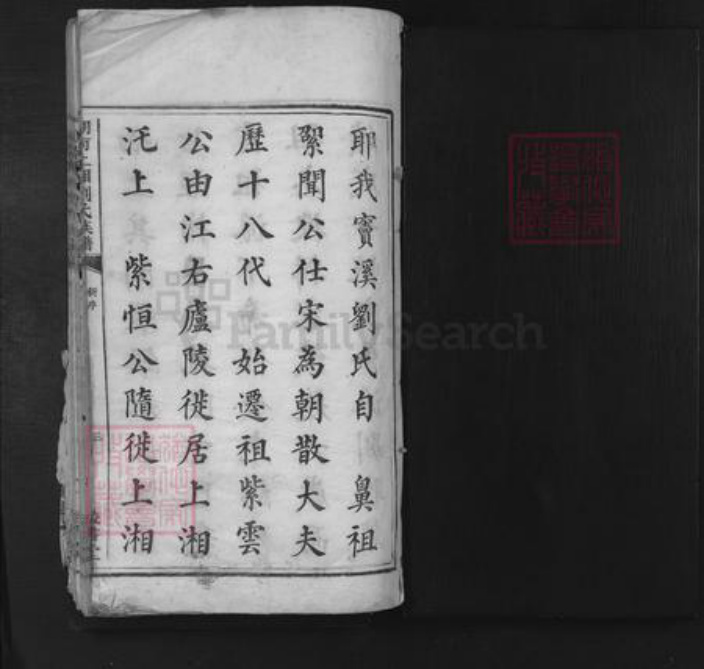 耶我寶溪劉氏自　鼻祖
絮聞公仕宋為朝散大夫
歷十八代　始遷祖紫雲
公由江右廬陵徙居上湘
汑上　紫恒公隨徙上湘
劉氏族譜
FamilySearch